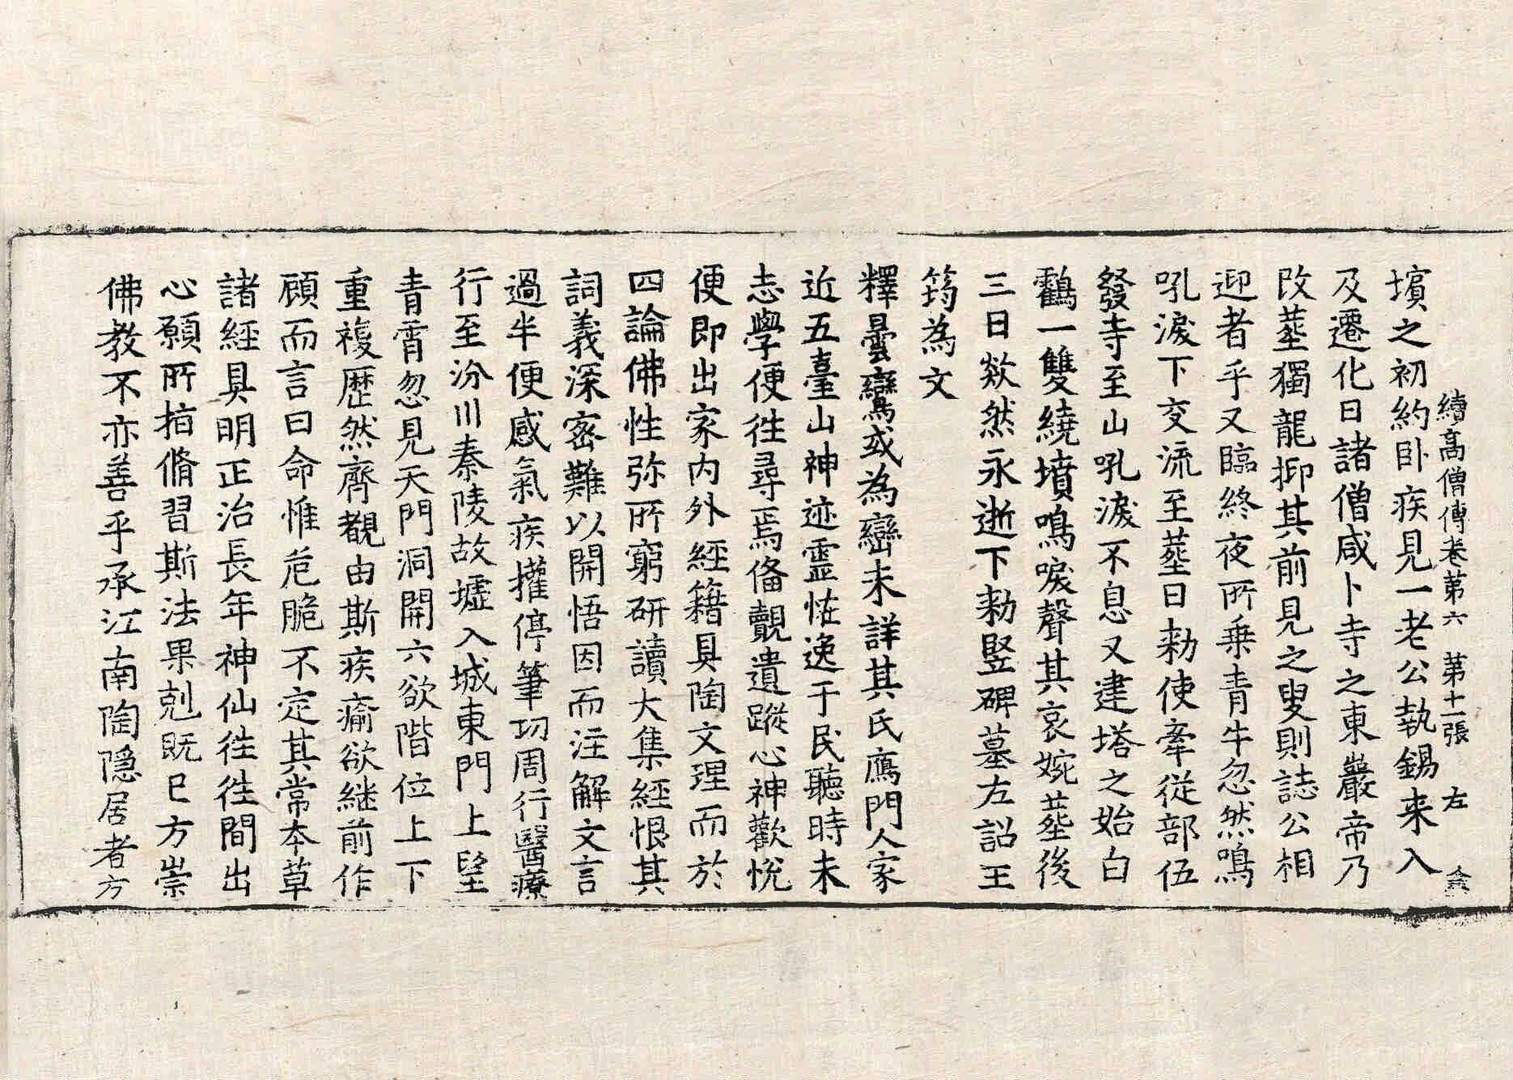 續高僧傳卷第六　第十一張　左
墳之初約卧疾見一老公執錫来入
及遷化日諸僧咸卜寺之東巖帝乃
改葬獨龍抑其前見之叟則誌公相
迎者乎又臨終夜所乗青牛忽然鳴
吼淚下交流至葬日勑使牽從部伍
發寺至山吼淚不息又建塔之始白
鸖一雙繞墳鳴唳聲其哀婉葬後
三日欻然永逝下勑竪碑墓左詔王
筠為文
釋曇鸞或為巒未詳其氏鴈門人家
近五臺山神迹靈恠逸于民聽時未
志學便徃尋焉俻覿遺蹤心神歡悅
便即出家内外經籍具陶文理而於
四論佛性弥所窮研讀大集經恨其
詞義深密難以開悟因而注解文言
過半便感氣疾權停筆功周行醫療
行至汾川秦陵故墟入城東門上望
青霄忽見天門洞開六欲階位上下
重複歷然齊覩由斯疾瘉欲継前作
顧而言曰命惟危脆不定其常本草
諸經具明正治長年神仙徃徃間出
心願所指脩習斯法果剋既已方崇
佛教不亦善乎承江南陶隠居者方